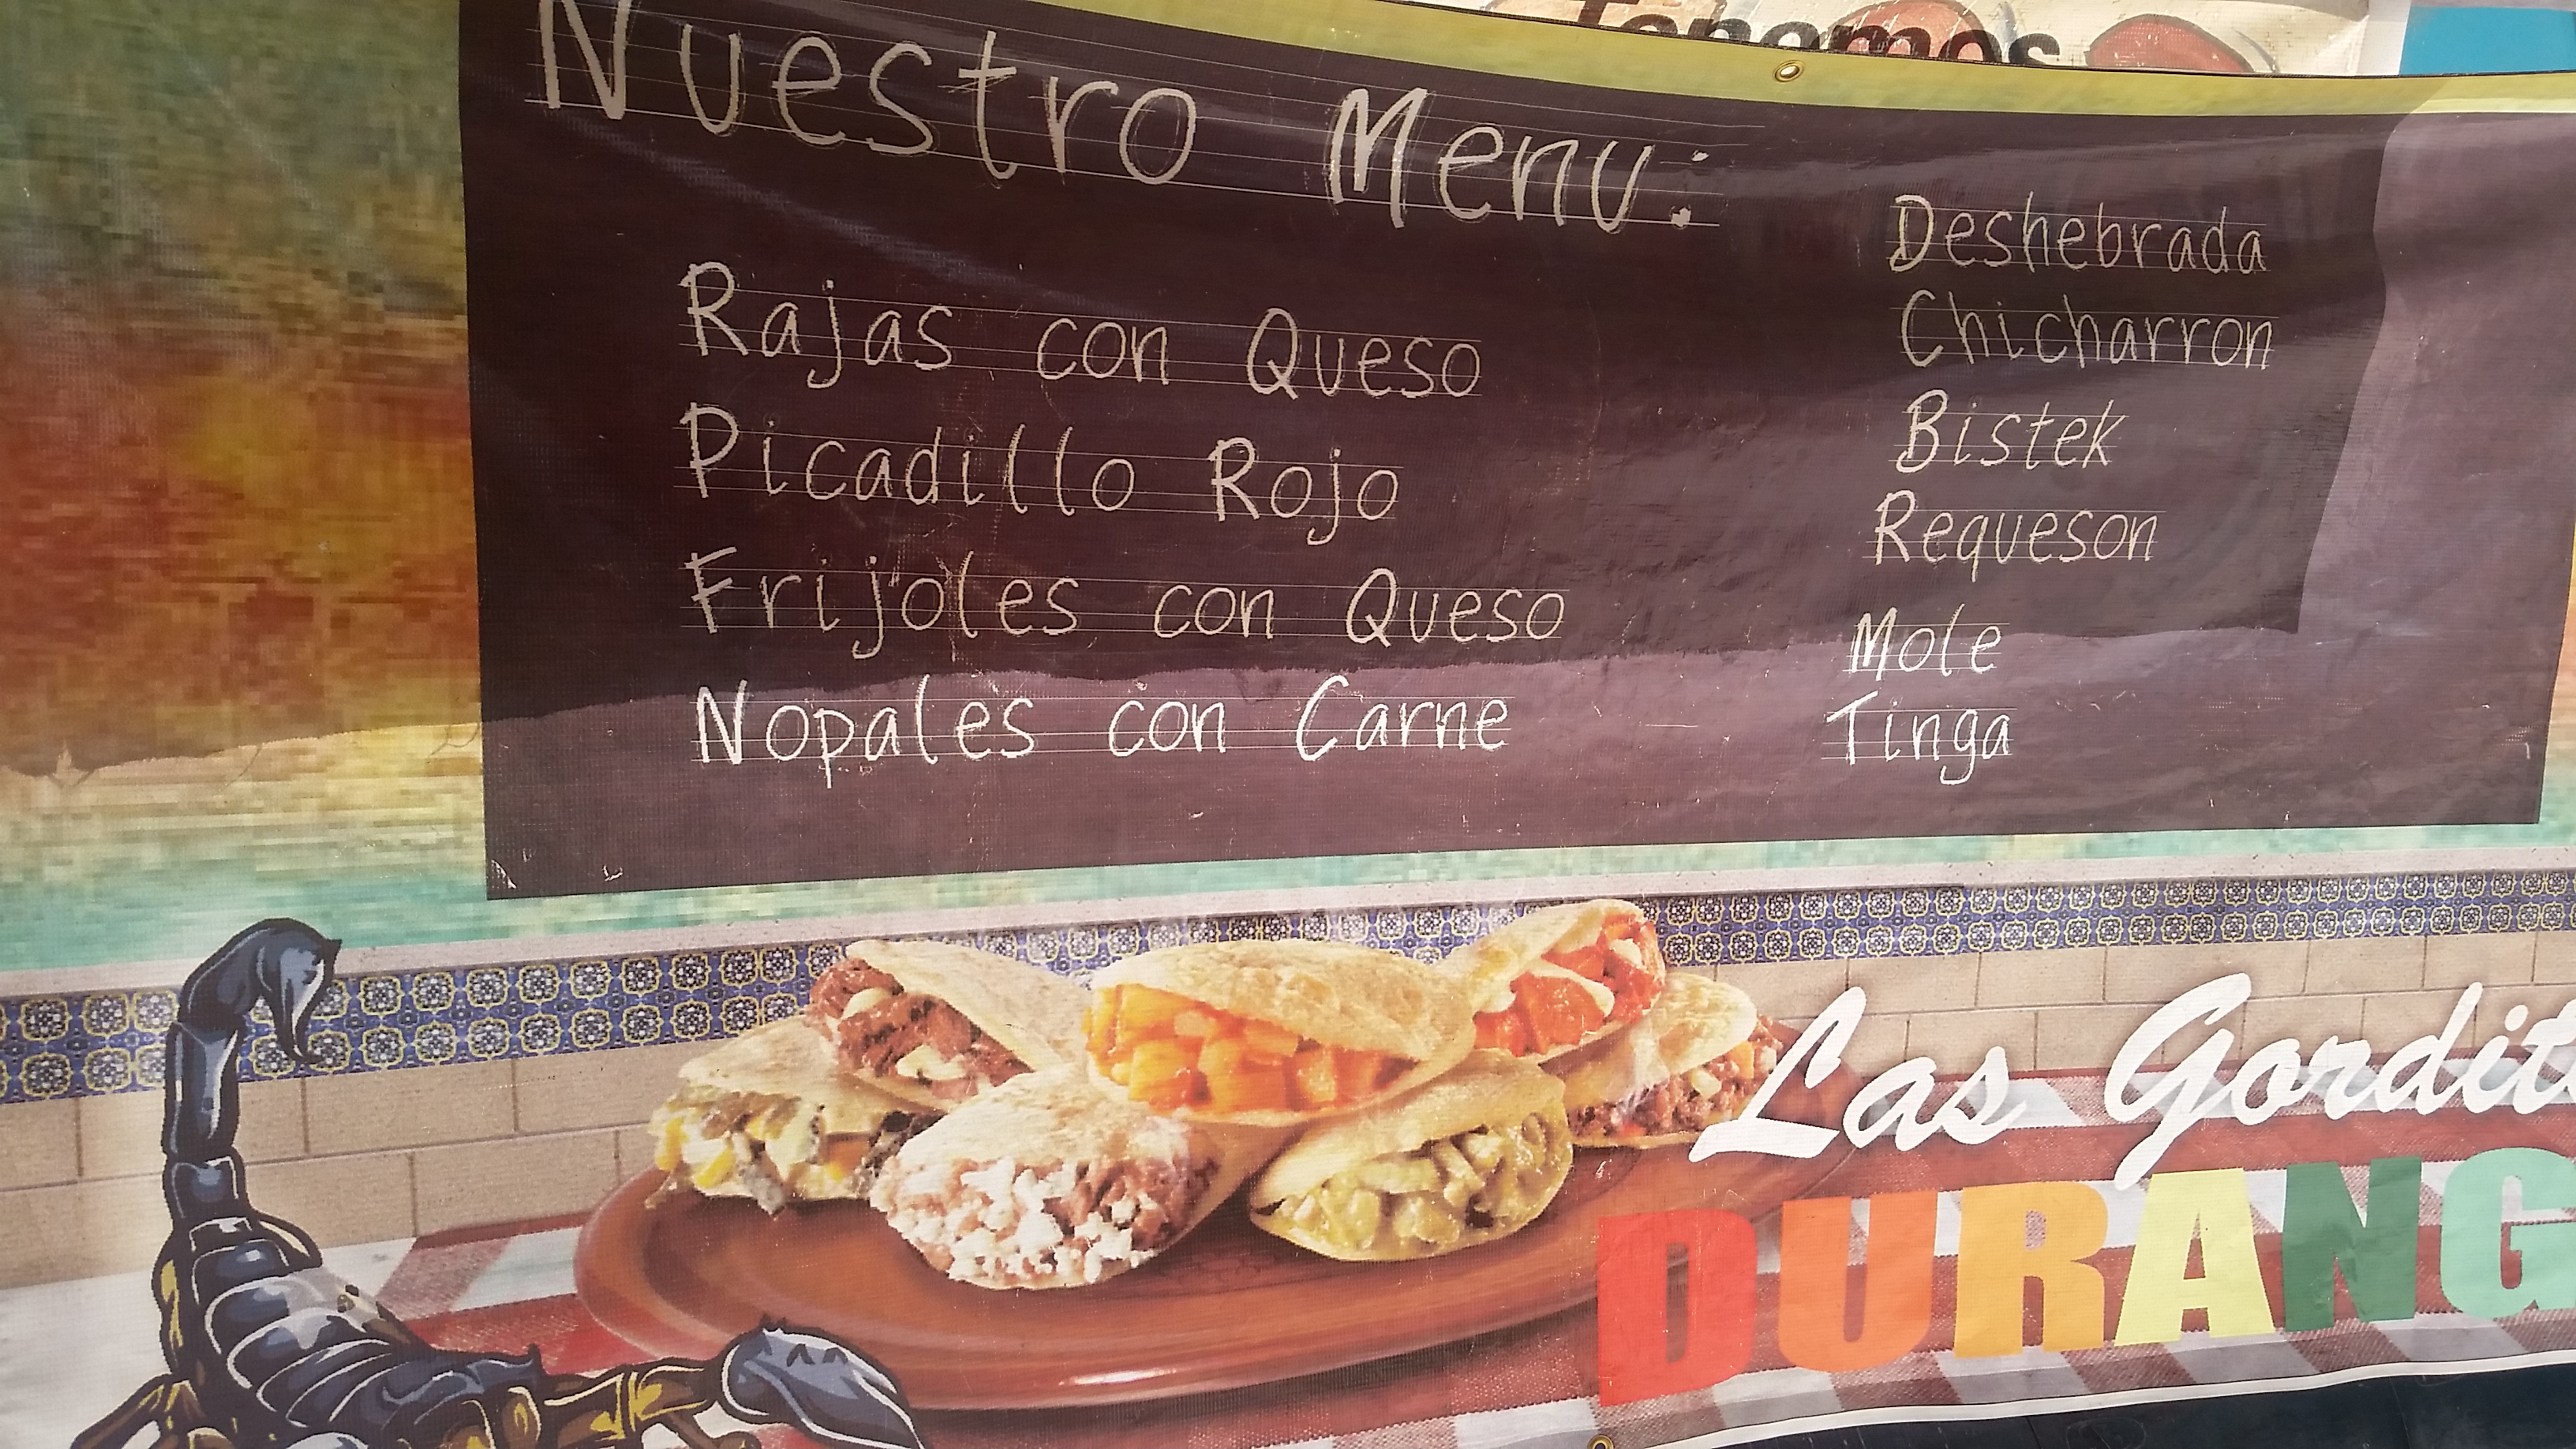 Tenemos
Nuestro Menu:
Rajas con Queso
Picadillo Rojo
Frijoles con Queso
Nopales con Carne
Deshebrada
Chicharron
Bistek
Requeson
Mole
Tinga
Las Gordit
DURANG